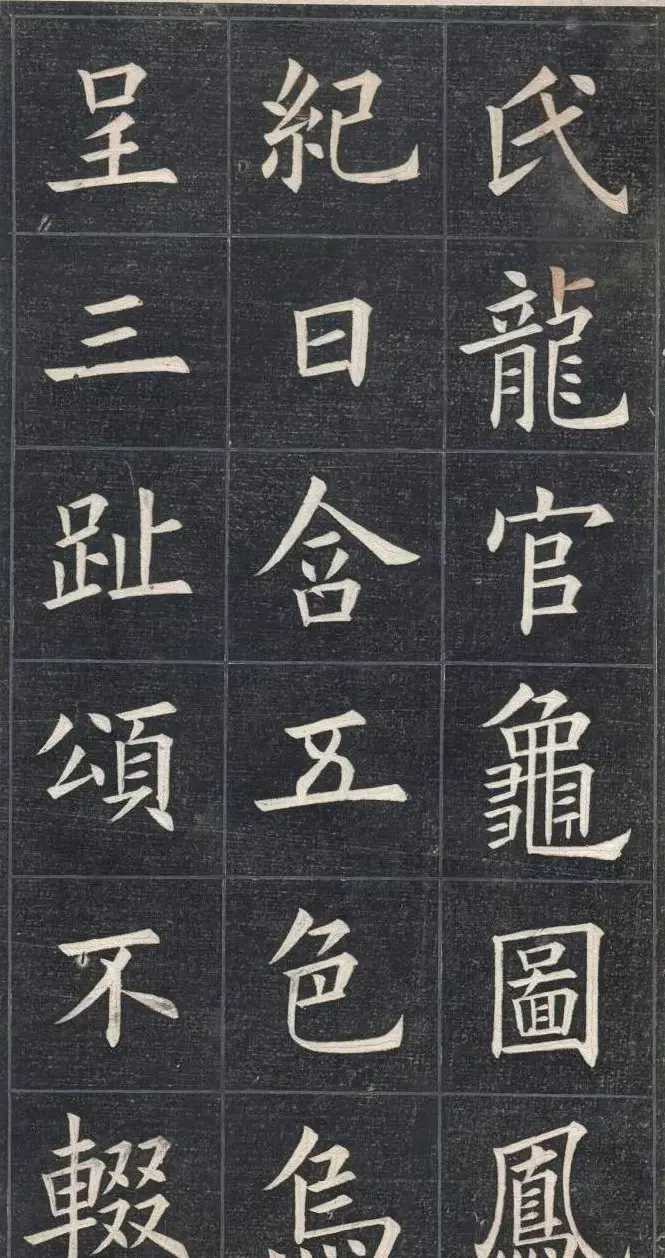 氏龍官龜圖鳳
紀日含五色烏
呈三趾頌不輟